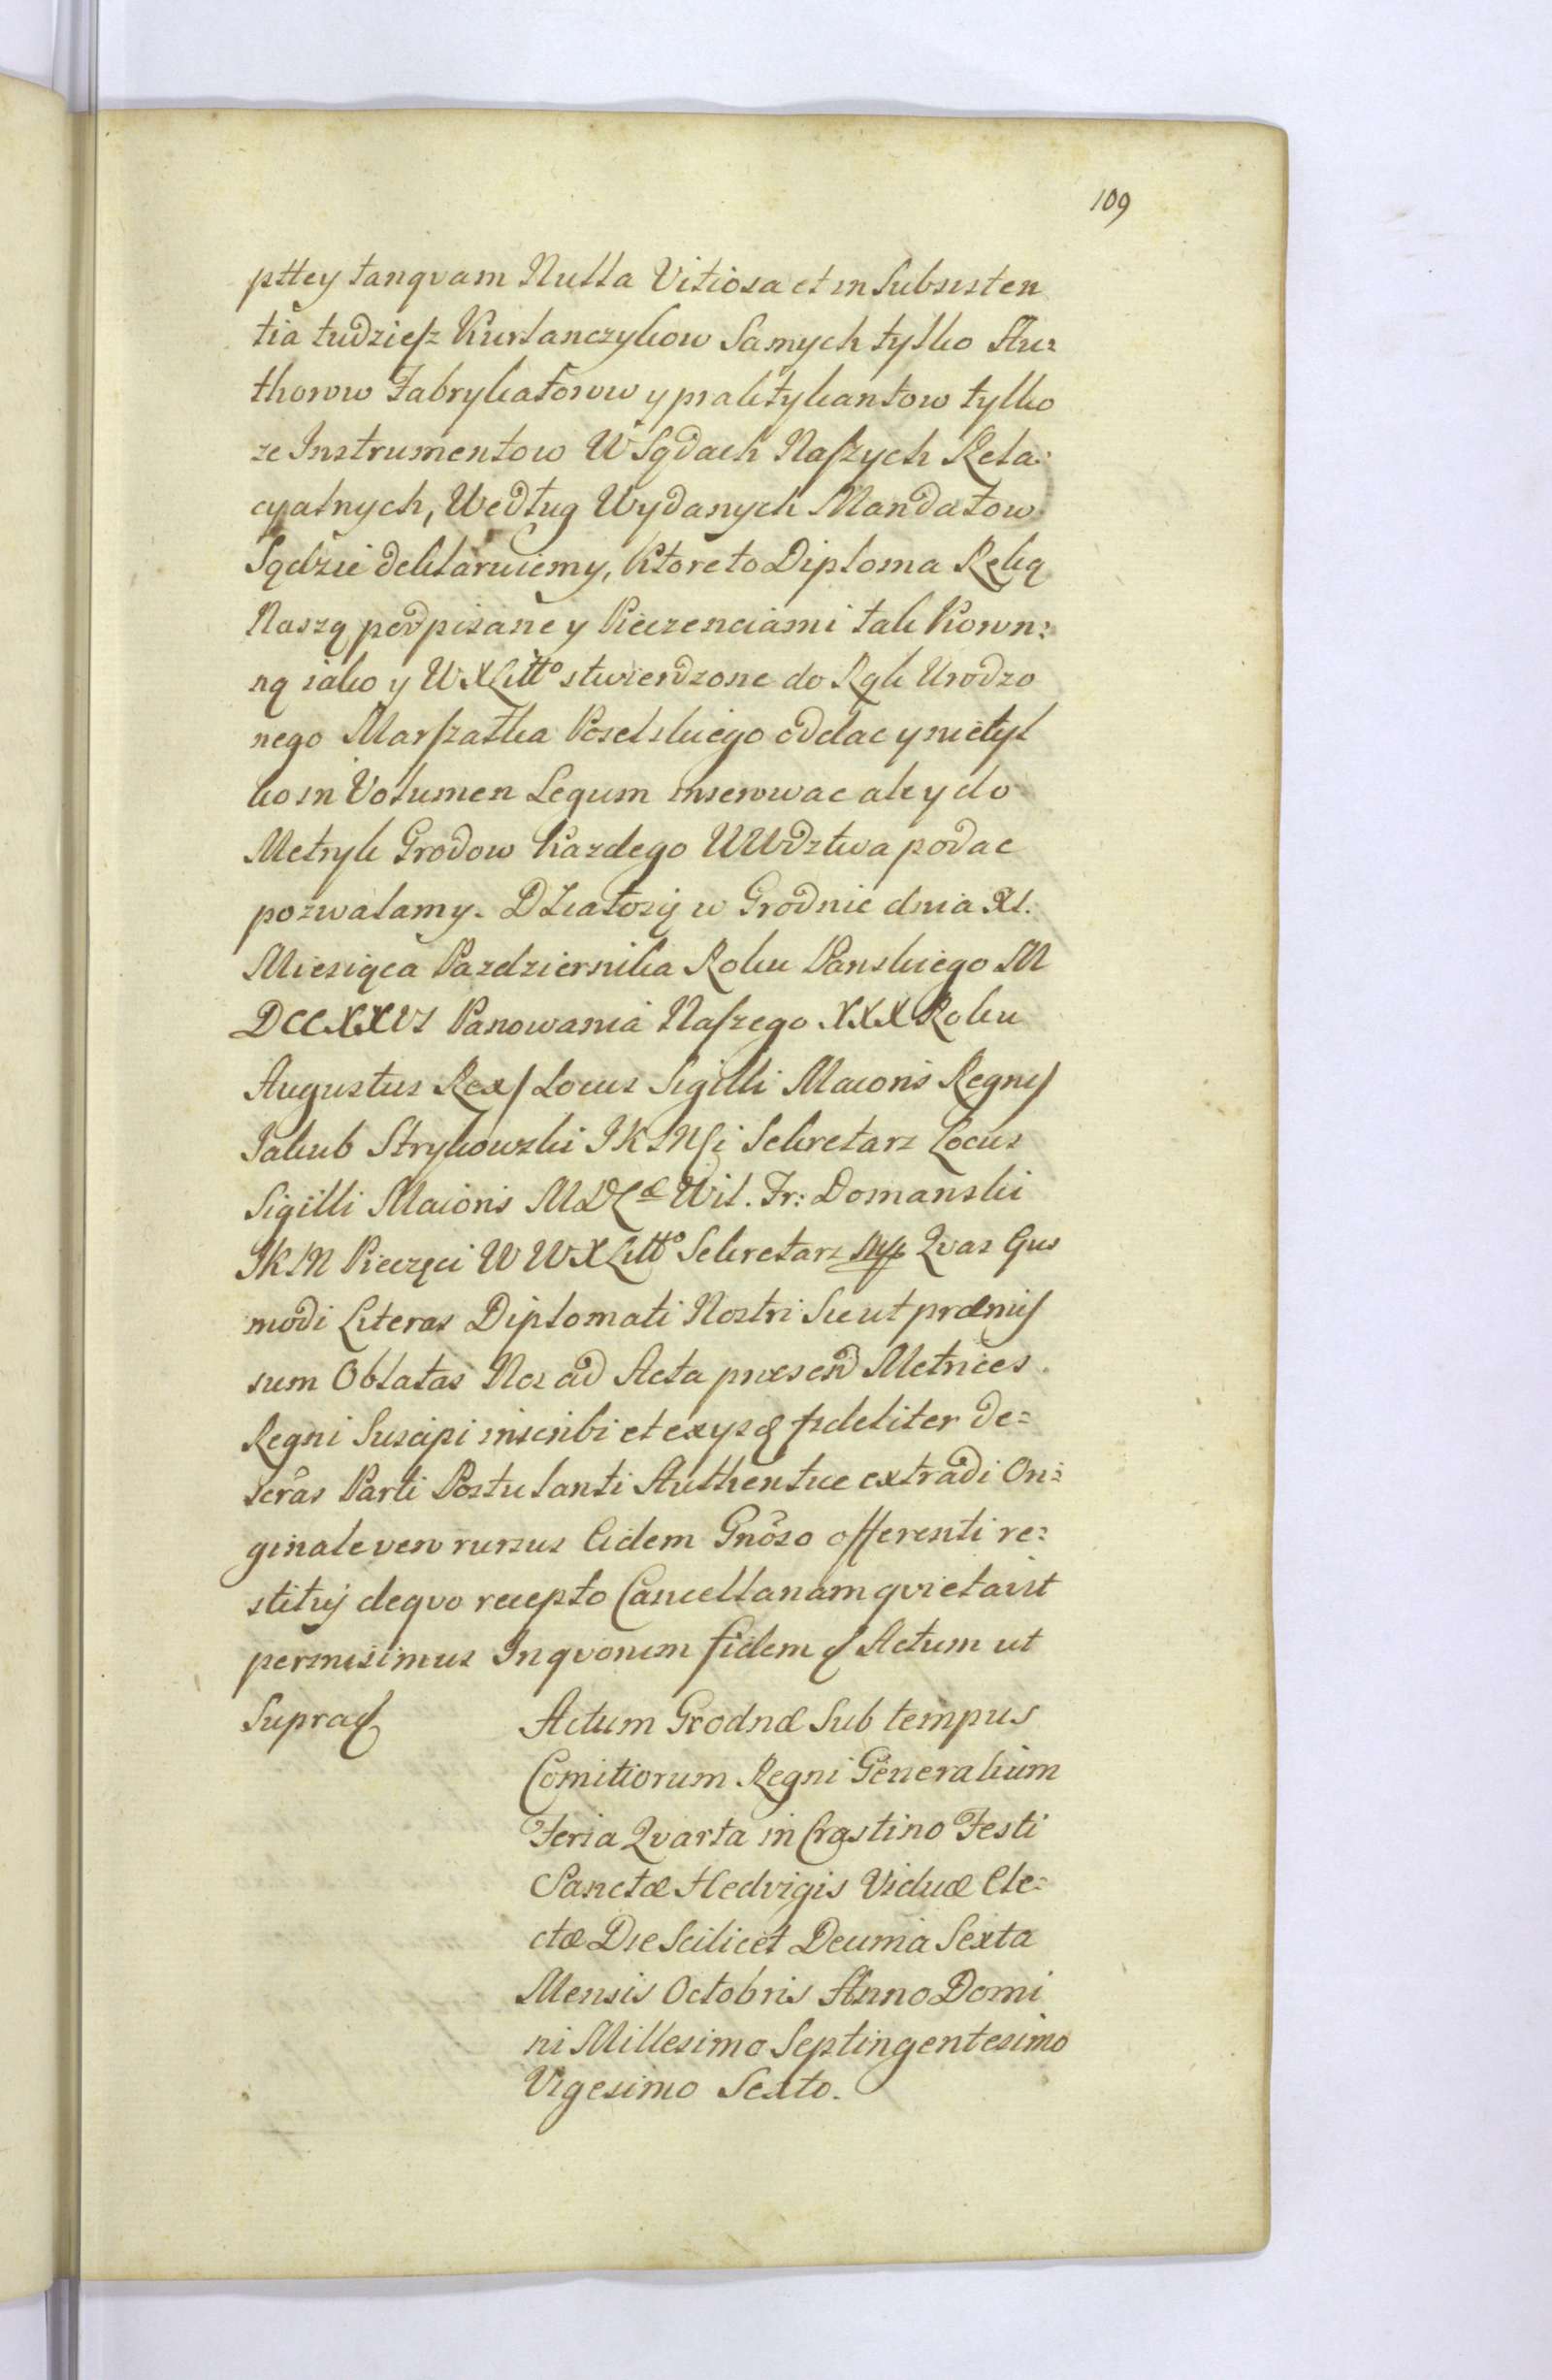 109
pttey tanqvam Nulla Vitiosa et in Subsisten
tia tudzieſz Kurlanczykow Samych tylko Au=
thorow Fabrykatorow y praktykantow tylko
ze Instrumentow W Sądach Naſzych Rela=
cyalnych, Według Wydanych Mandatow
Sądzić deklaruiemy, Ktore to Diploma Ręką
Naszą podpisane y Pieczenciami tak Koron=
ną iako y WXLitto stwierdzone do Rąk Urodzo
nego Marſzałka Poselskiego oddac y nietyl
ko in Volumen Legum inserowac ale y do
Metryk Grodow Kazdego WWdztwa podac
pozwalamy. Dział osię w Grodnie dnia XI.
Miesiąca Pazdziernika Roku Panskiego M
DCCXXVI Panowania Naſzego XXX Roku
Augustus Rex/ Locus Sigilli Maioris Regni/
Jakub Strykowski JKMſi Sekretarz Locus
Sigilli Maioris MDL Wil. Fr: Domanski
JKM Pieczęci W WXLitto Sekretarz mp Qvas ejus
modi Literas Diplomati Nostri Sicut præmiſ
sum Oblatas Nos ad Acta præsend Metrices
Regni Suscipi inscribi et ex ysą fideliter de=
scras Parti Postulanti Authentice extradi Ori=
ginale vero rursus Eidem Gnoso offerenti re=
stitui deqvo recepto Cancellariam qvietavit
permisimus In qvorum fidem & Actum ut
Supra &
Actum Grodnæ Sub tempus
Comitiorum Regni Generalium
Feria Qvarta in Crastino Festi
Sanctæ Hedvigis Viduæ Ele=
ctæ Die Scilicet Decima Sexta
Mensis Octobris Anno Domi
ni Millesimo Septingentesimo
Vigesimo Sexto.